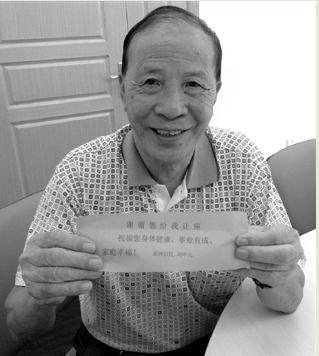 谢谢您给我让座
祝福您身体健康、事业有成、
家庭幸福!